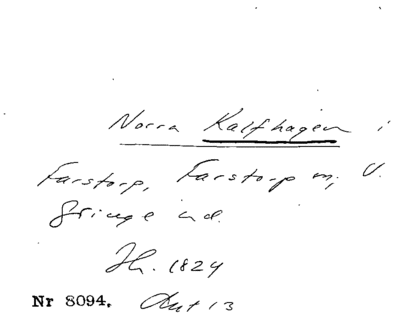 Norra Kalfhagen i
Farstorp, Farstorp m, V.
Göinge hd.
Jh. 1824
Nr 8094. Aut 13